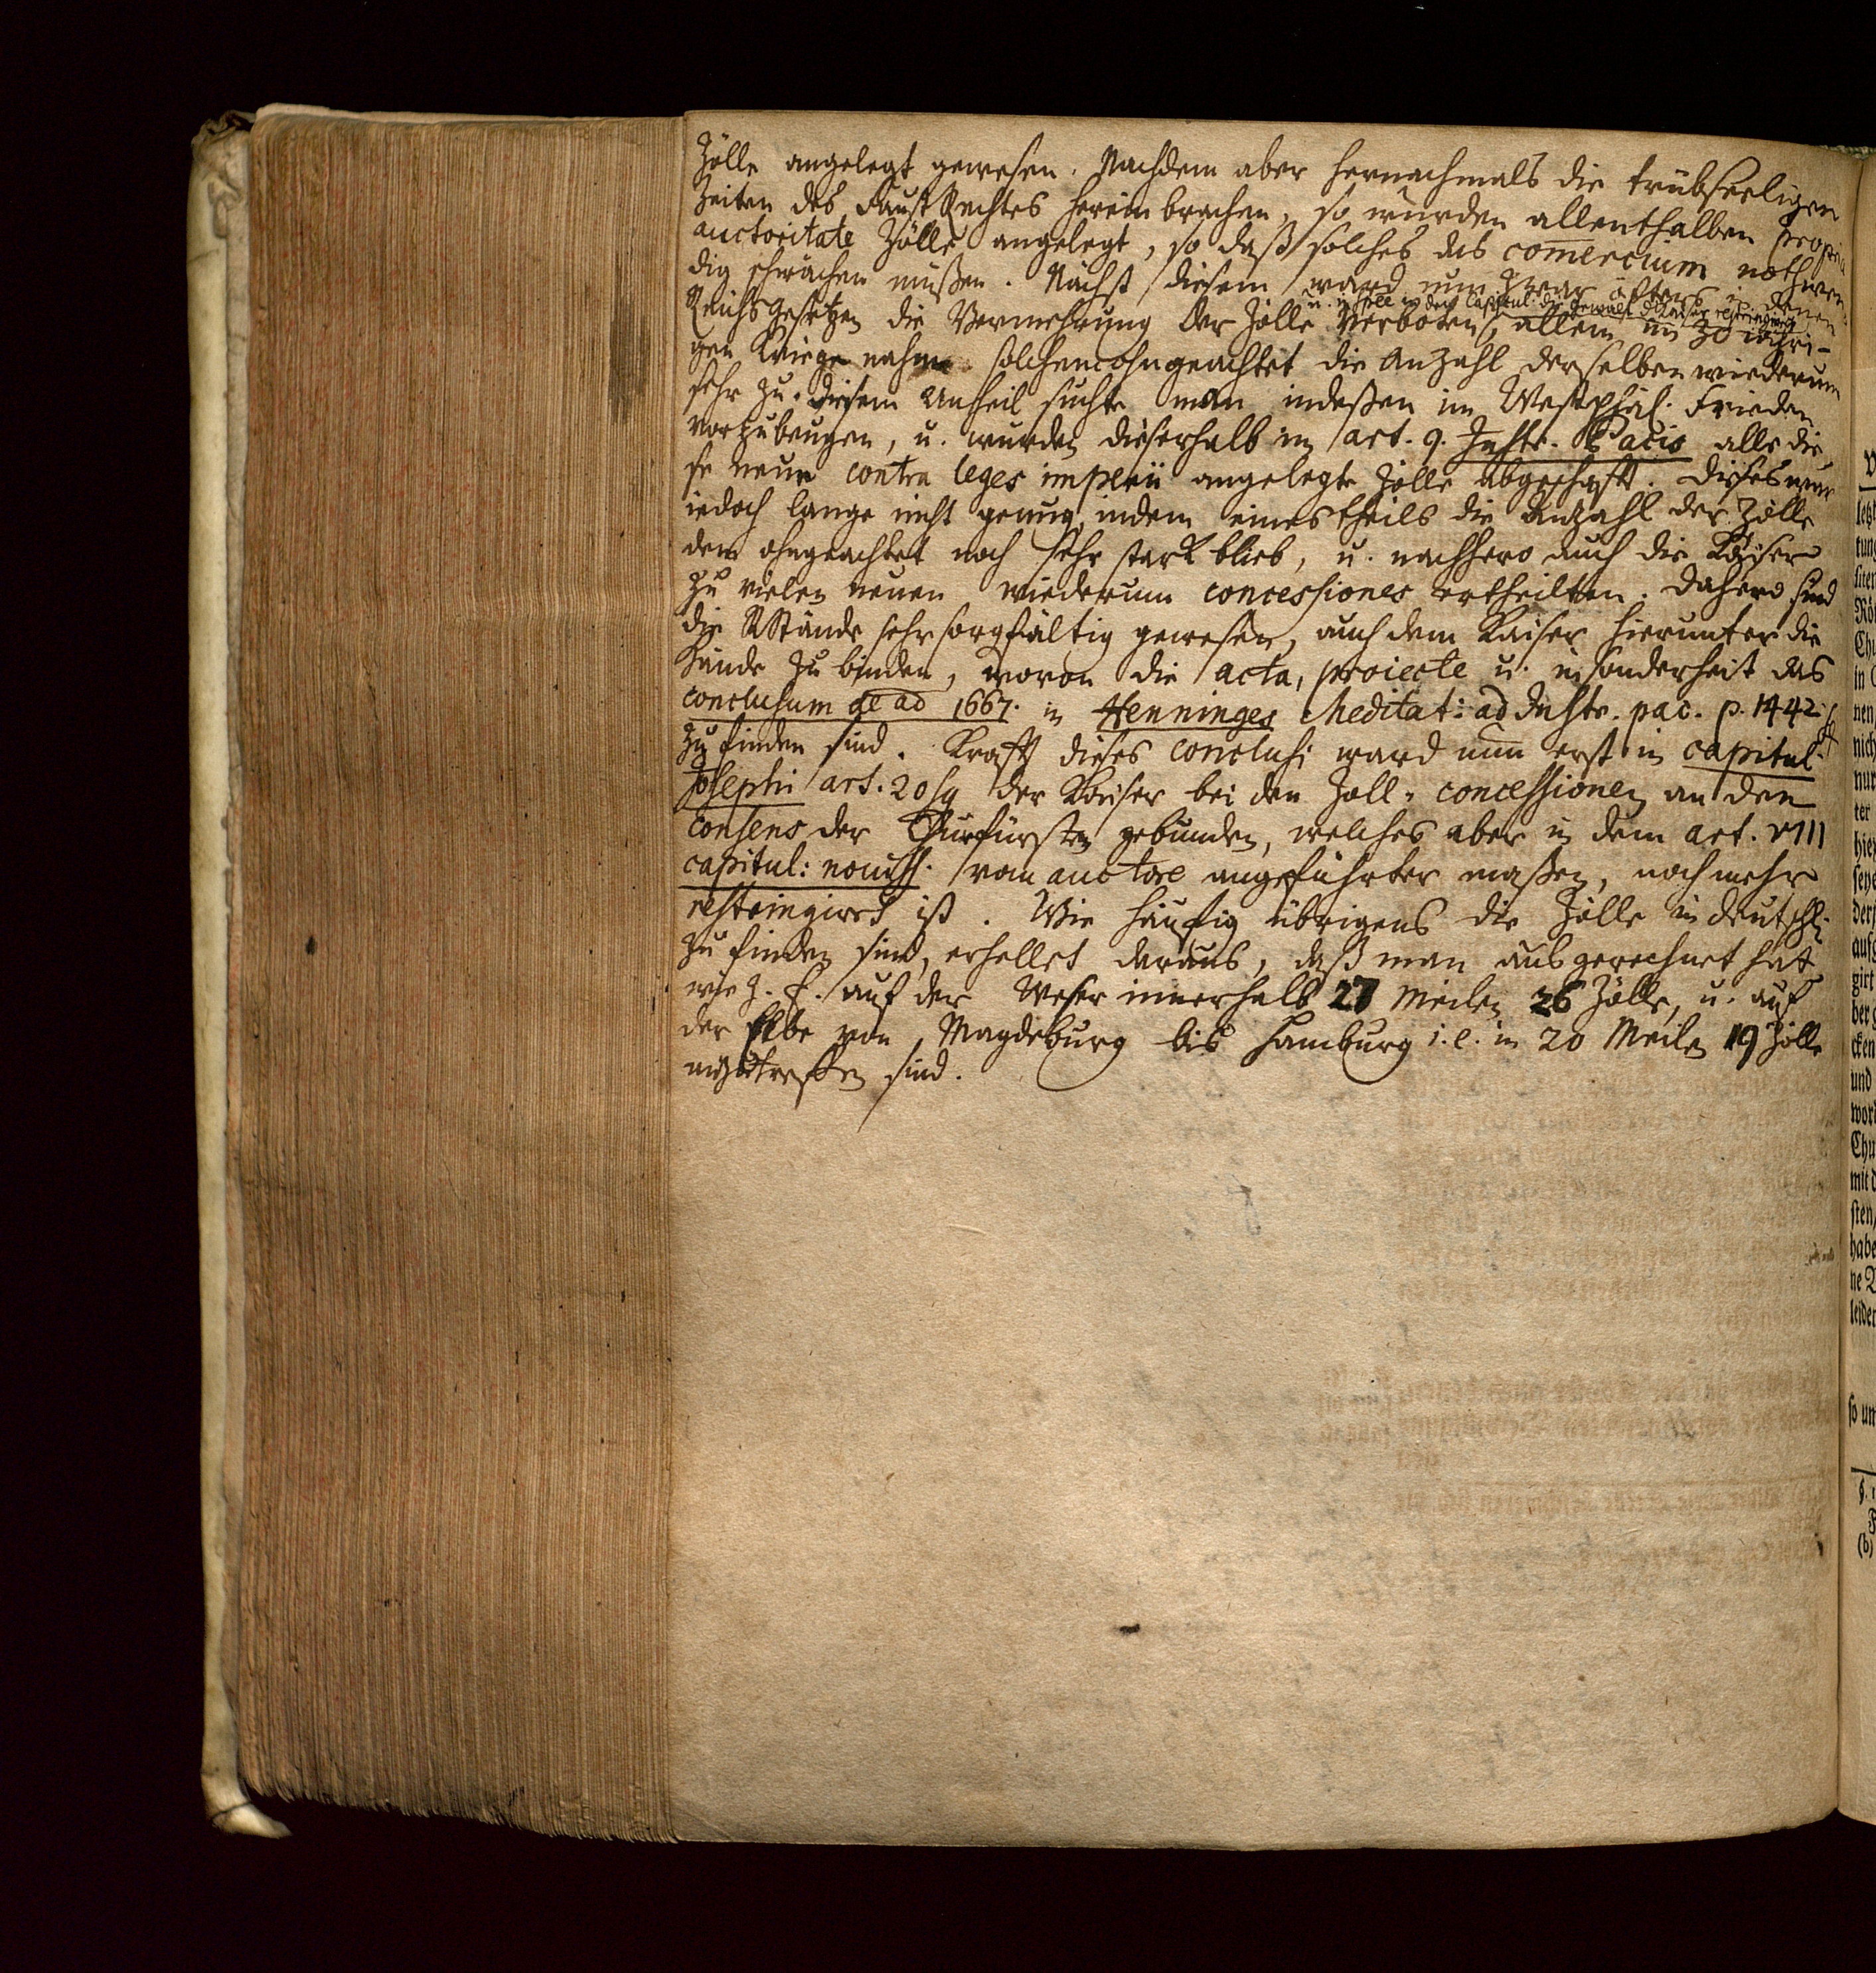 Zölle angelegt gewesen. Nachdem aber hernachmals die trübseeligen
Zeiten des FaustRechtes herein brachen, so wurden allenthalben propria
auctoritate Zölle angelegt, so daß solches das comercium nothwen
dig schwächen müßen. Nächst diesem ward nun zwar öfters in denen
u. in specie in den Capitul: die Gewalt des Kaisers restringiret
ReichsGesetzen die Vermehrung der Zölle verboten, allein im 30 iähri-
gen Kriege nahm solchemohngeachtet die Anzahl derselben wiederum
sehr zu. Diesem Unheil suchte man indeßen im Westphäl. Frieden
vorzubeugen, u. wurden dieserhalb im art. 9. Instr. Pacis alle die
se neue contra leges imperii angelegte Zölle abgeschafft. Dieses war
iedoch lange nicht genug, indem eines theils die Anzahl der Zölle
dem ohngeachtet noch sehr stark blieb, u. nachhero auch die Kaiser
zu vielen neuen wiederum concessiones ertheilten. Dahero sind
die RStände sehr sorgfältig gewesen, auch dem Kaiser hierunter die
Hände zu binden, wovon die acta, proiecte u. insonderheit das
conclusum de ao 1667. in Henninges Meditat: ad Instr. pac. p. 1442. sq
zu finden sind. Krafft dieses conclusi ward nun erst in capitul.
Josephi art. 20 sq der Kaiser bei den Zoll-concessionen an den
consens der Churfürsten gebunden, welches aber in dem art. VIII
capitul: nouiss. vom auctore angeführter maßen, noch mehr
restringiret ist. Wie häufig übrigens die Zölle in Deutschl.
zu finden sind, erhellet daraus, daß man ausgerechnet hat
wie z. E. auf der Weser innerhalb 27 Meilen 26 Zölle, u. auf
der Elbe von Magdeburg bis Hamburg i. e. in 20 Meilen 19 Zölle
anzutreffen sind.